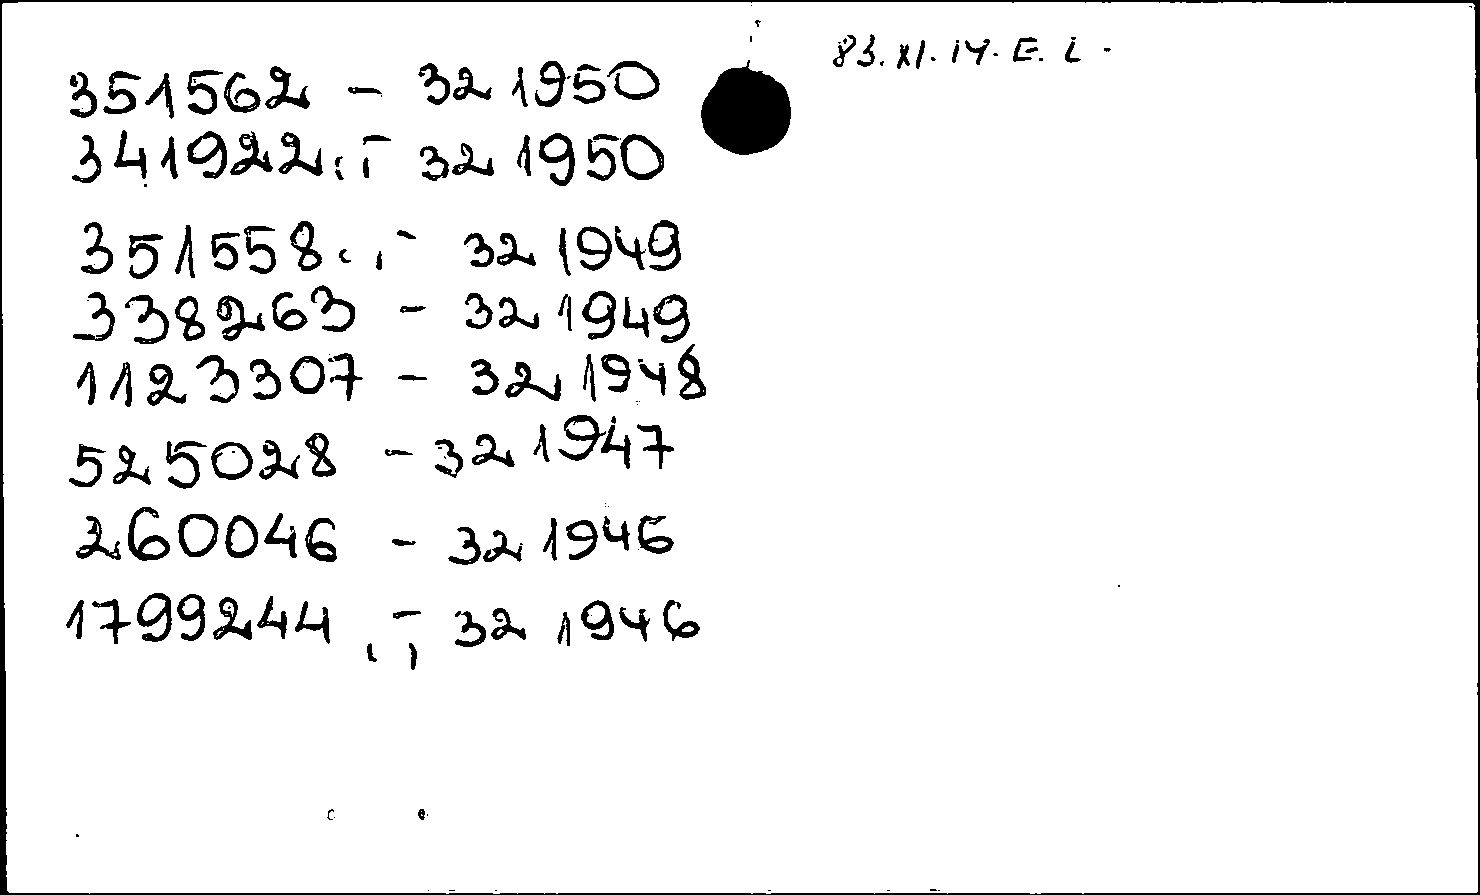 83. XI. 14. E. L.
351562 - 32 1950
341922 - 32 1950
351558 - 32 1949
338263 - 32 1949
1123307 - 32 1948
525028 - 32 1947
260046 - 32 1946
1799244 - 32 1946